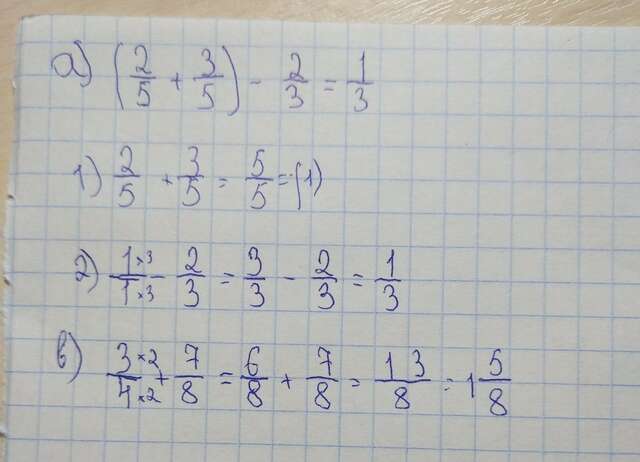 а) (2/5 + 3/5) - 2/3 = 1/3
1) 2/5 + 3/5 = 5/5 = (1)
2) 1×3/1×3 - 2/3 = 3/3 - 2/3 = 1/3
в) 3×2/4×2 + 7/8 = 6/8 + 7/8 = 13/8 = 1 5/8